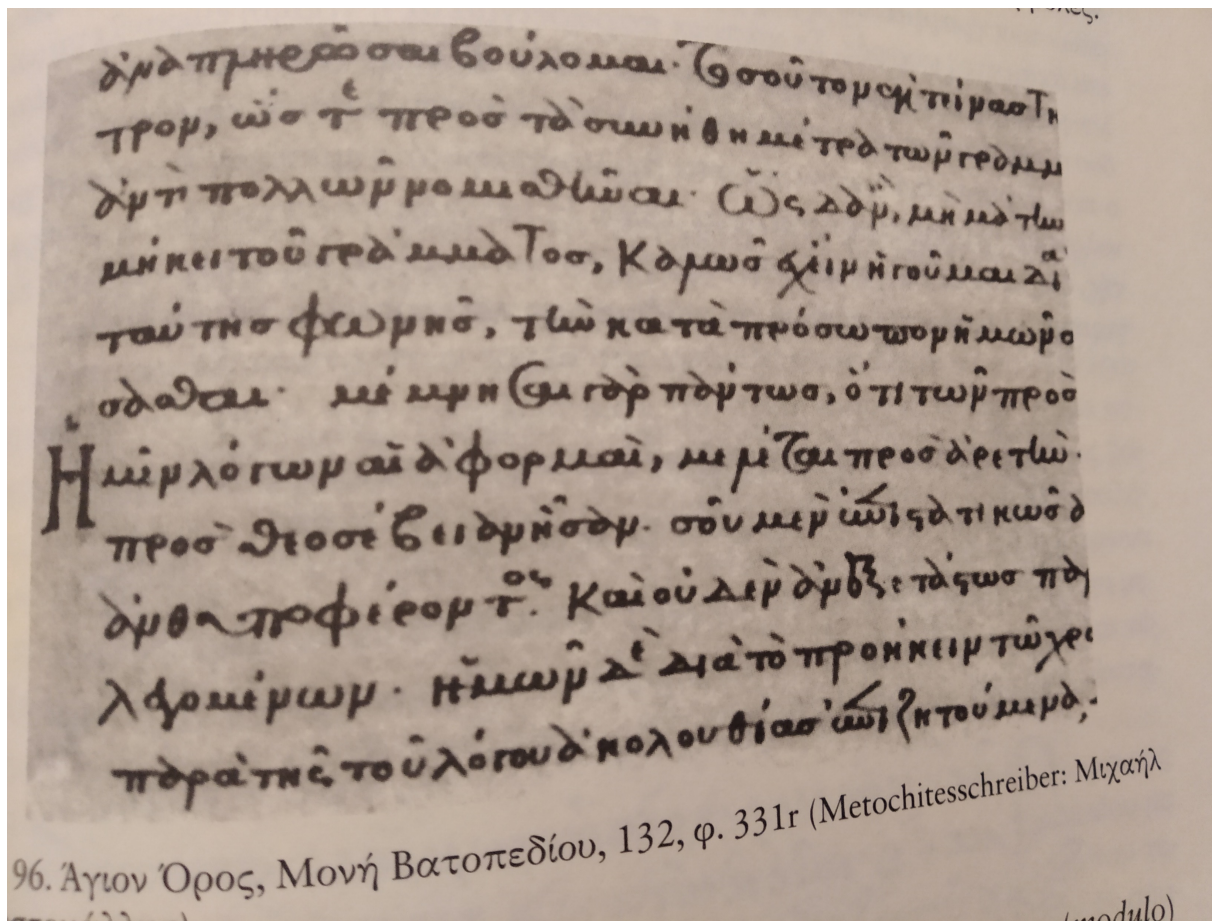 ἀναπληρῶσαι βούλομαι· τοσοῦτον ἐκτείνας τὴ
τρον, ὥστε πρὸς τὰ συνήθη μέτρα τῶν γραμμ
ἀντὶ πολλῶν νομισθῆναι· ὡς ἂν, μὴ
μήκει τοῦ γράμματος, ἔχειν ἡγοῦμαι δια
ταύτης φωνῆς, τὴν κατὰ πρόσωπον ἡμῶν
μέμνησαι γὰρ πάντως, ὅτι τῶν πρὸς
Ἡμῖν λόγων αἱ ἀφορμαὶ, πρὸς ἀρετὴν·
πρὸς θεοσέβειαν ἦσαν. σοῦ μὲν ἐπιστατικῶς ἀ
ἀνθυποφέροντος. καὶ οὐδὲν ἀνεξετάστως πα
λεγομένων. ἡμῶν δὲ διὰ τὸ προήκειν τῷ χρ
παρὰ τῆς τοῦ λόγου ἀκολουθίας ἐπιζητούμενα,
96. Άγιον Όρος, Μονή Βατοπεδίου, 132, φ. 331r (Metochitesschreiber: Μιχαήλ
(modulo)